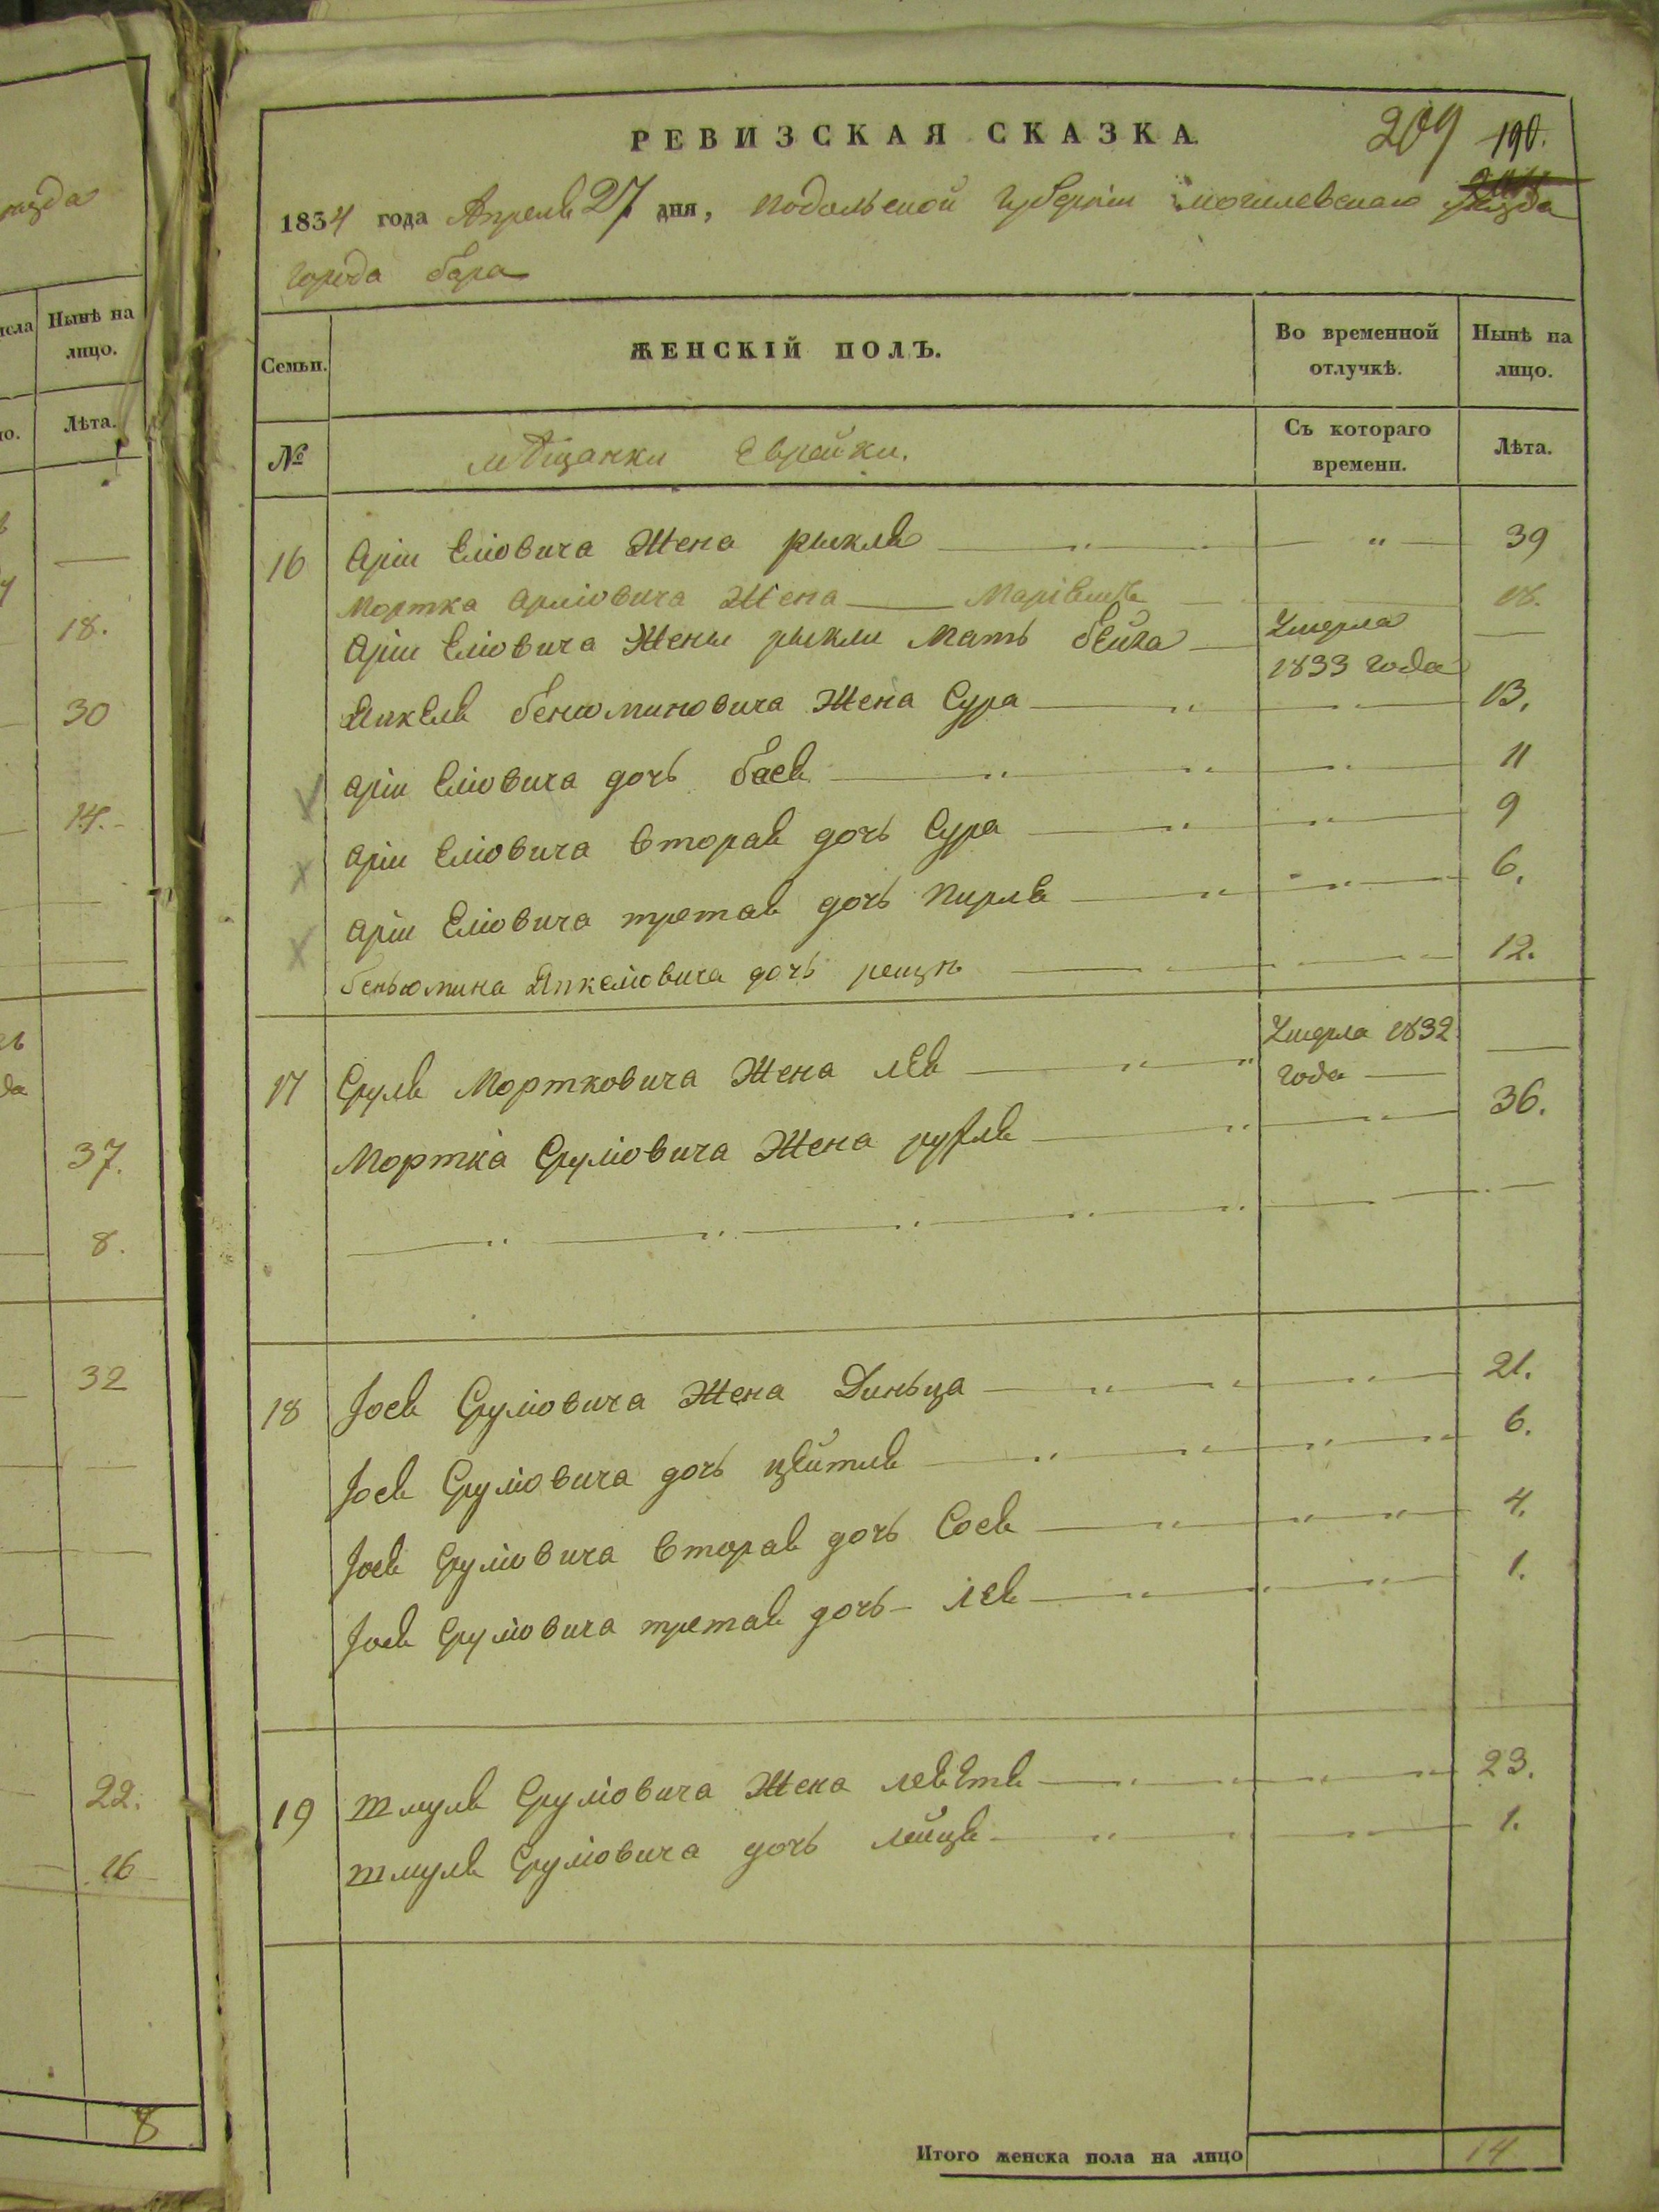 РЕВИЗСКАЯ СКАЗКА.
209 190.
1834 года Апреля 27 дня, подольской губернiи могилевскаго уѣзда
города бара
Семьи.
ЖЕНСКIЙ ПОЛЪ.
Во временной отлучкѣ.
Нынѣ на лицо.
№
мѣщанки Еврейки.
Съ котораго времени.
Лѣта.
16 Арiи Елiовича Жена рыкля — " — 39
Мортка Арлiовича Жена — — 18.
Арiи Елiовича Жены рыкли Мать бейла — Умерла 1833 года —
Янкеля бенюминовича Жена Сура — " — 13.
Арiи Елiовича дочь бася — " — 11
Арiи Елiовича вторая дочь Сура — " — 9
Арiи Елiовича третая дочь Пирля — " — 6.
беньюмина Янкелiовича дочь — 12.
17 Сруля Мортковича Жена лея — " — Умерла 1832 года —
Мортка Срулiовича Жена рухля — " — 36.
18 Iося Срулiовича Жена Диньца — " — 21.
Iося Срулiовича дочь цвѣйтля — " — 6.
Iося Срулiовича вторая дочь Сося — " — 4.
Iося Срулiовича третая дочь — лея — " — 1.
19 Шмуля Срулiовича Жена — " — 23.
Шмуля Срулiовича дочь лейця — " — 1.
Итого женска пола на лицо 14
уѣзда
исла
Нынѣ на лицо.
ло.
Лѣта.
18.
30
14.
да
37.
8.
32
22.
16
8